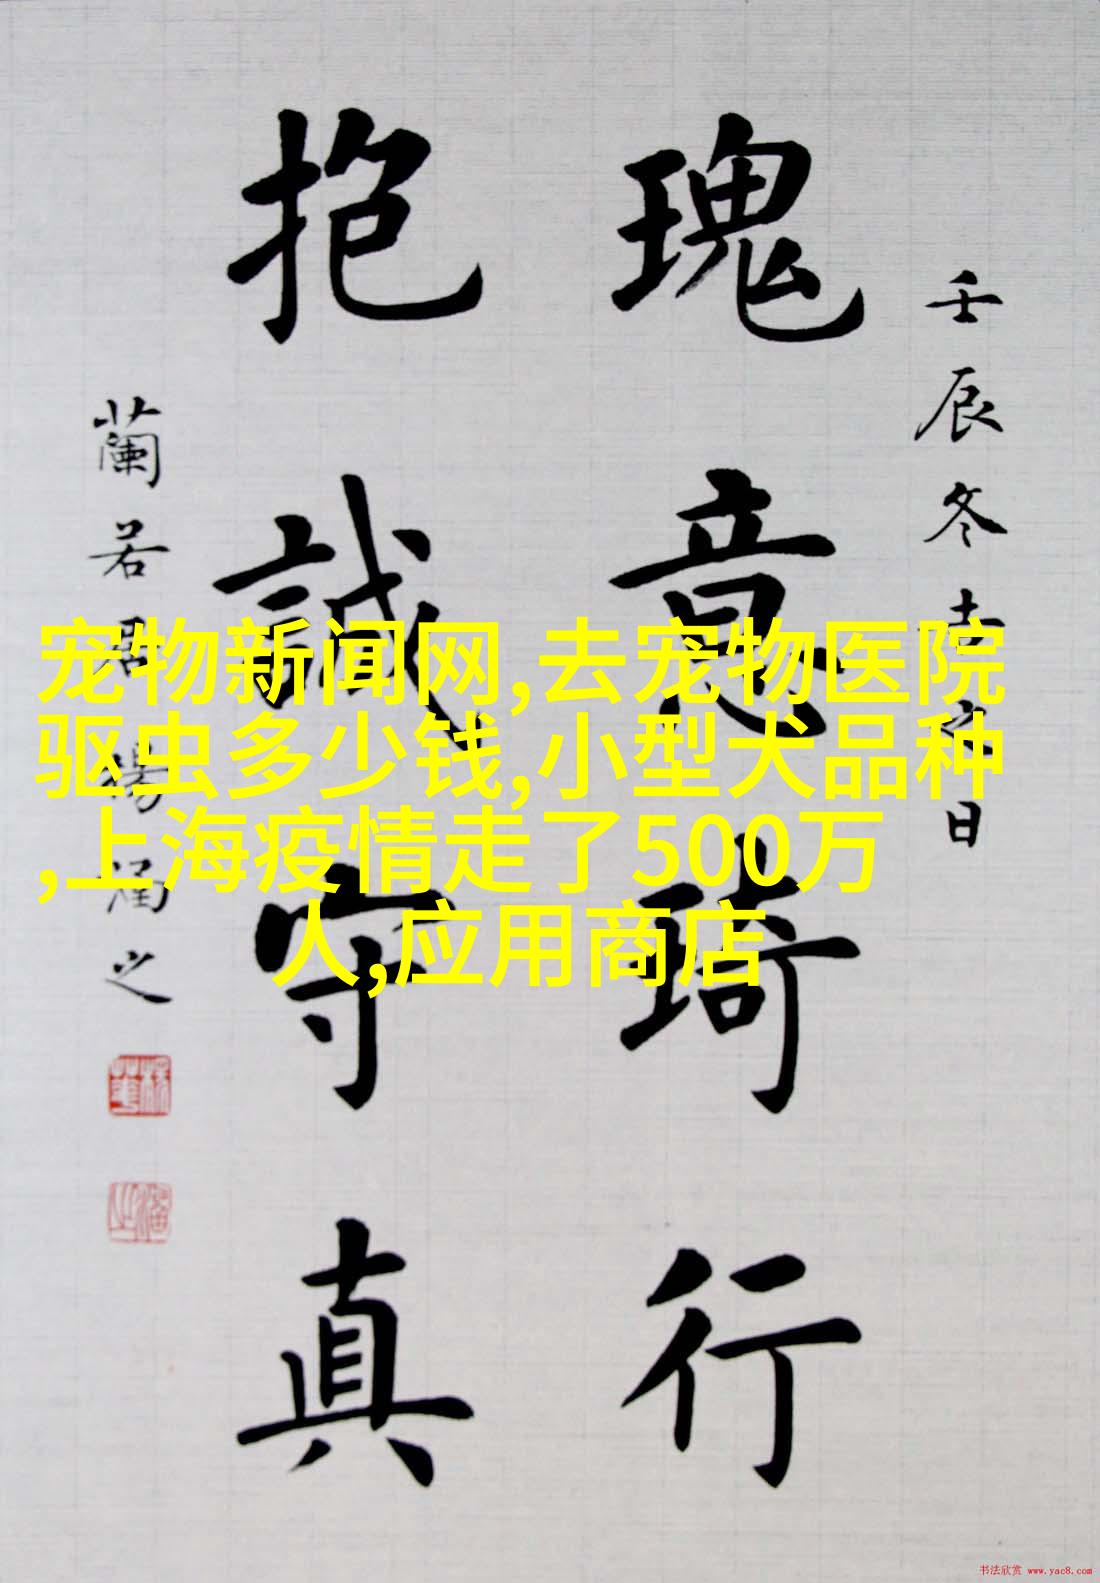 壬辰冬吉之日
瑰意琦行
抱誠守真
蘭若居楊涵之
宠物新闻网,去宠物医院
驱虫多少钱,小型犬品种
,上海疫情走了500万
人,应用商店
书法欣赏 www.yac8.com